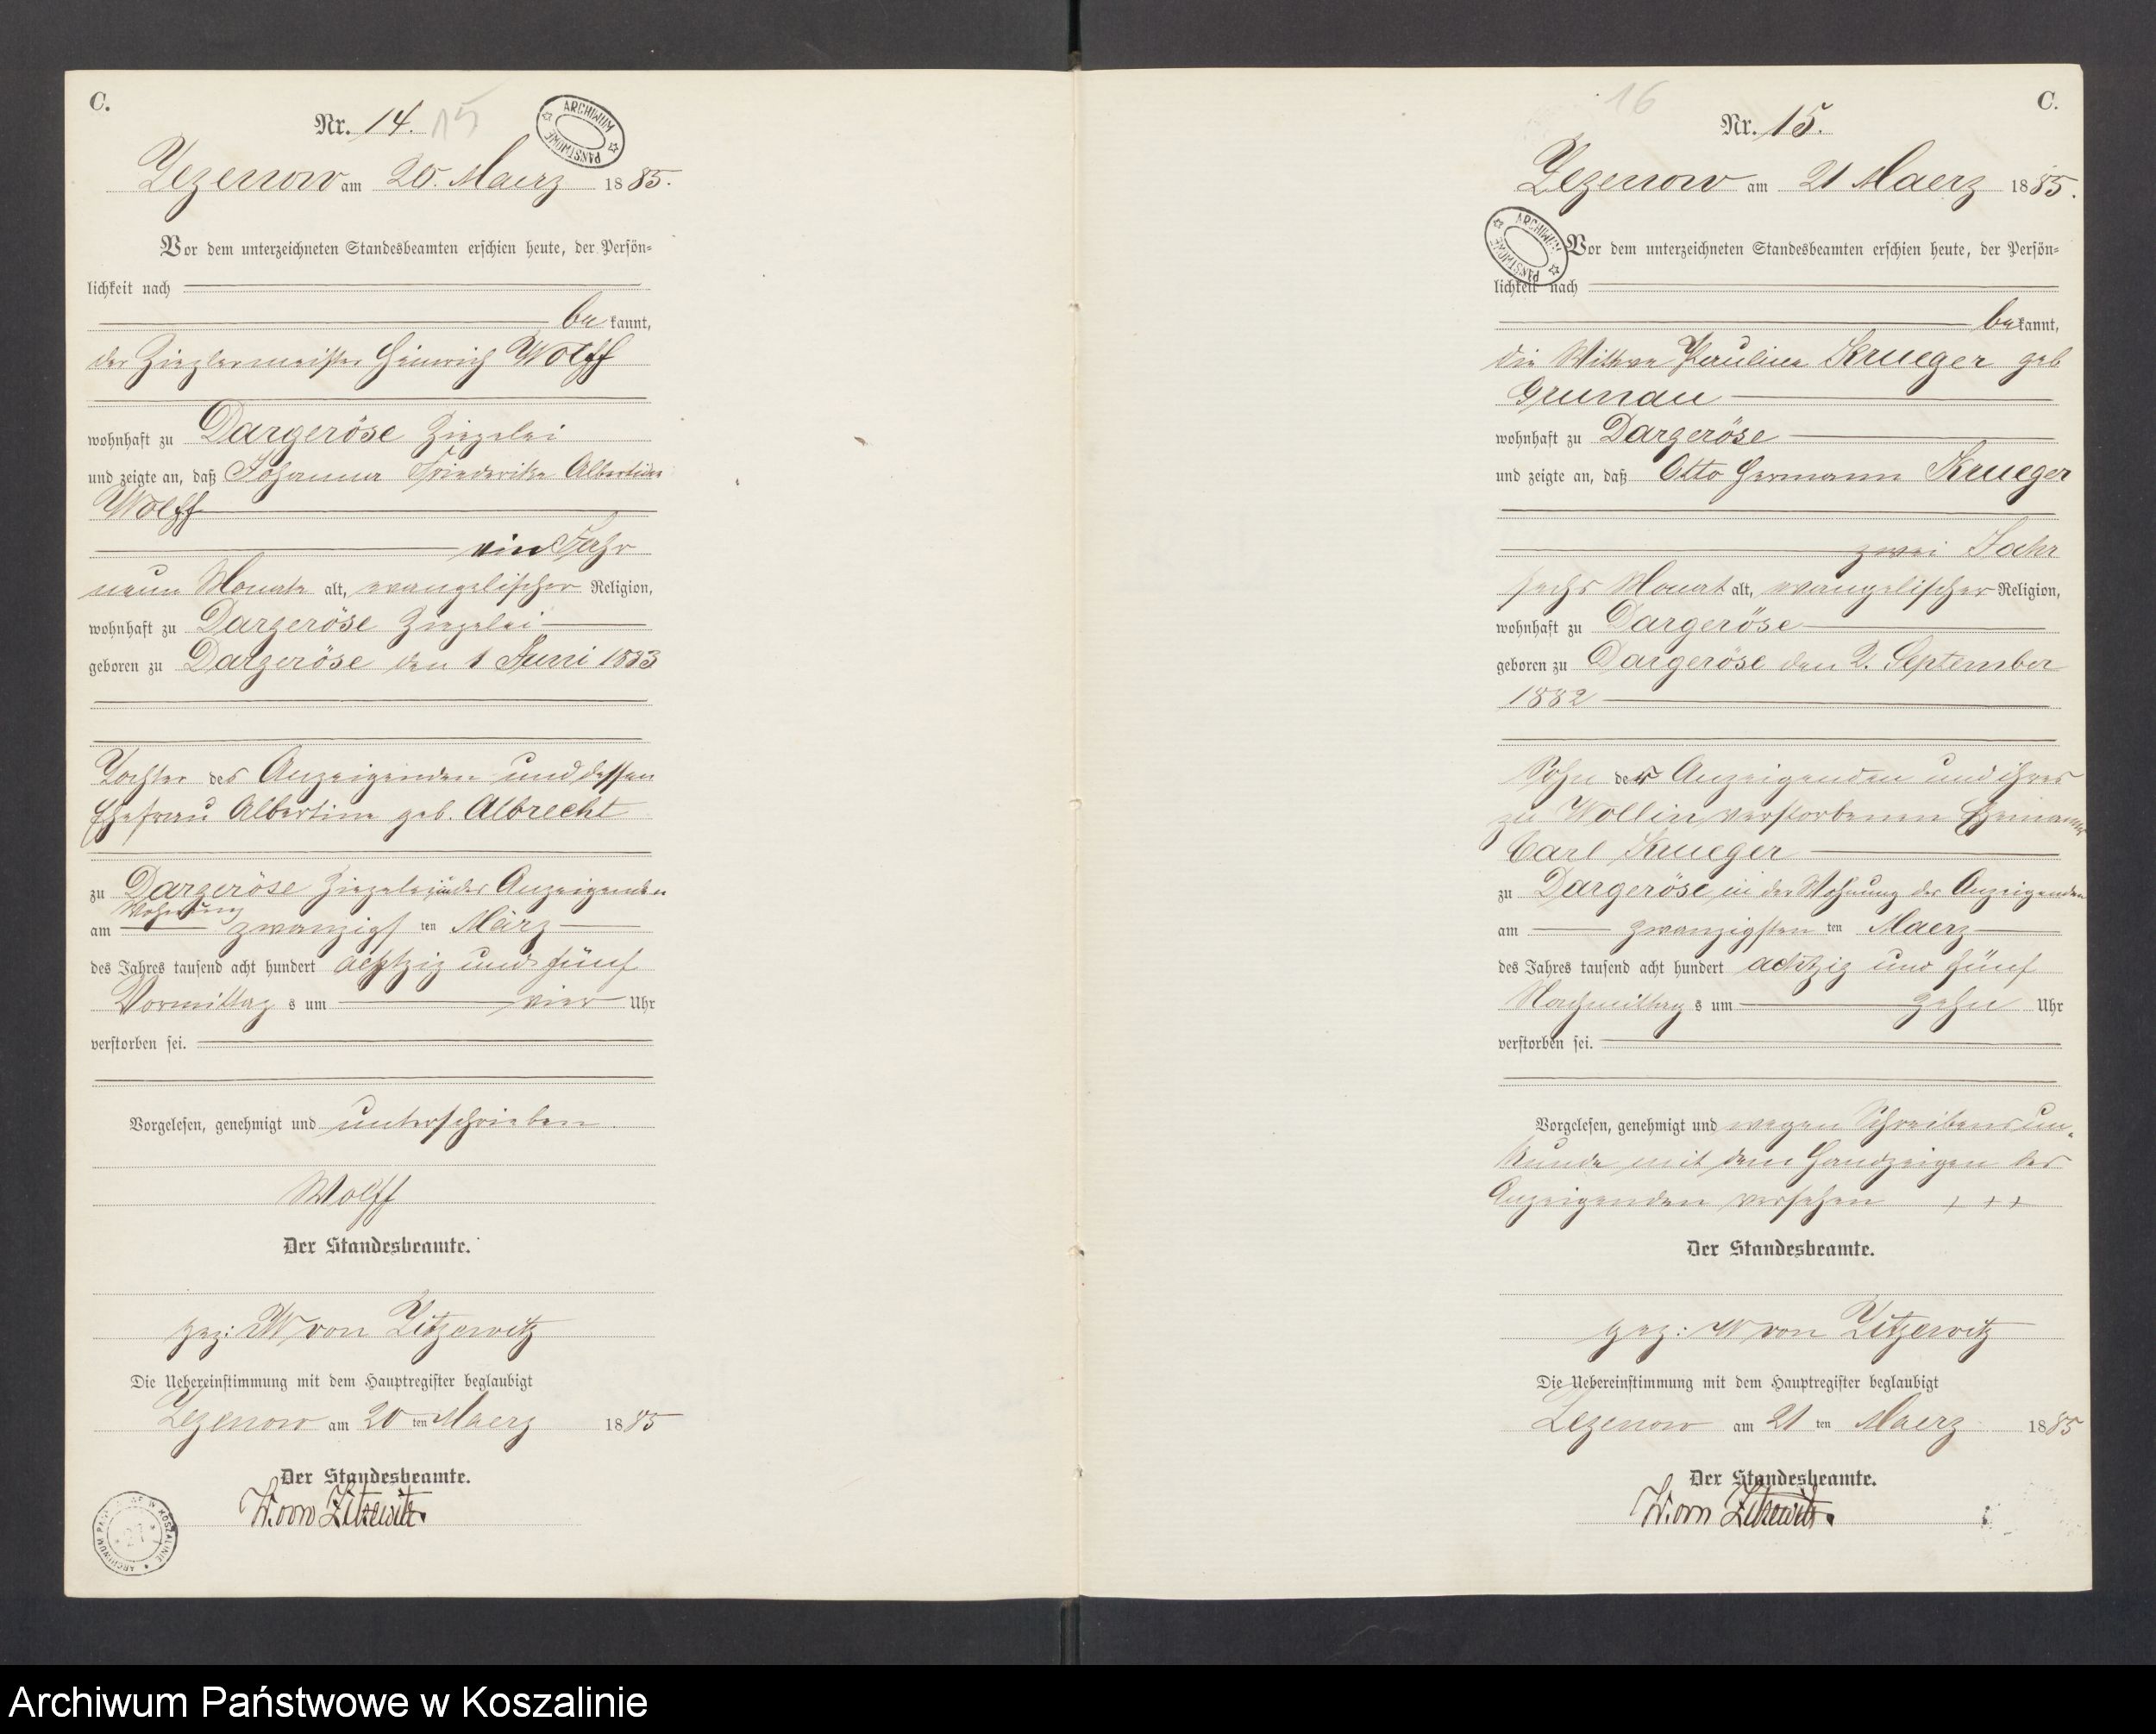 C.
Nr. 14. 15
ARCHIWUM PAŃSTWOWE
Zezenow am 20. Maerz 1885.
Vor dem unterzeichneten Standesbeamten erschien heute, der Persön-
lichkeit nach
bekannt,
der Zieglermeister Heinrich Wolff
wohnhaft zu Dargeröse Ziegelei
und zeigte an, daß Johanna Friederike Albertine
Wolff
ein Jahr
neun Monate alt, evangelischer Religion,
wohnhaft zu Dargeröse Ziegelei
geboren zu Dargeröse den 1 Juni 1883
Tochter des Anzeigenden und dessen
Ehefrau Albertine geb. Albrecht
zu Dargeröse Ziegelei in des Anzeigenden
Wohnung
am zwanzigsten März
des Jahres tausend acht hundert achtzig und fünf
Vormittags um vier Uhr
verstorben sei.
Vorgelesen, genehmigt und unterschrieben
Wolff
Der Standesbeamte.
gez: W von Zitzewitz
Die Uebereinstimmung mit dem Hauptregister beglaubigt
Zezenow am 20 ten Maerz 1885
Der Standesbeamte.
W. von Zitzewitz.
ARCHIWUM W KOSZALINIE
C.
16
Nr. 15.
Zezenow am 21 Maerz 1885.
ARCHIWUM PAŃSTWOWE
Vor dem unterzeichneten Standesbeamten erschien heute, der Persön-
lichkeit nach
bekannt,
die Wittwe Pauline Krueger geb
Grunau
wohnhaft zu Dargeröse
und zeigte an, daß Otto Hermann Krueger
zwei Jahr
sechs Monat alt, evangelischer Religion,
wohnhaft zu Dargeröse
geboren zu Dargeröse den 2. September
1882
Sohn der Anzeigenden und ihres
zu Wollin verstorbenen Ehemannes
Carl Krueger
zu Dargeröse in der Wohnung der Anzeigenden
am zwanzigsten ten Maerz
des Jahres tausend acht hundert achtzig und fünf
Nachmittags um zehn Uhr
verstorben sei.
Vorgelesen, genehmigt und wegen Schreibensun-
kunde mit dem Handzeigen der
Anzeigenden versehen + + +
Der Standesbeamte.
gez: W von Zitzewitz
Die Uebereinstimmung mit dem Hauptregister beglaubigt
Zezenow am 21 ten Maerz 1885
Der Standesbeamte.
W. von Zitzewitz.
Archiwum Państwowe w Koszalinie